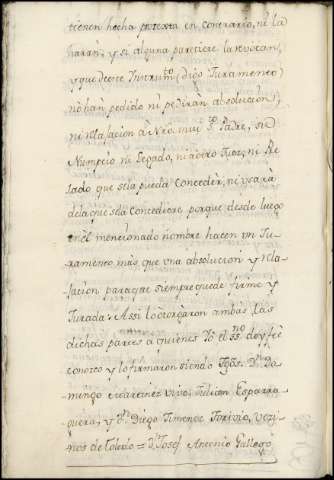 tienen hecha protexta en contrario, ni la
harràn, y si alguna pareciere la revocan,
y que de este Instrum.to (digo Juramento)
nò han pedido nì pediràn absolucion,
ni relaxacion à Nro. mui S.to Padre, su
Nuncio ni Legado, ni à otro Juez, ni Pre
lado que sela pueda Concedèr, ni usarà
dela que sela concediere porque desde luego
en el mencionado nombre hacen un Ju-
ramento màs que una absolucion y rela-
xacion para que siempre quede firme y
Jurada: Assi lo otorgaron ambas las
dichas partes a quienes Yò el ss.no doy fèe
conozco y lo firmaron siendo Tgos. D.n Do-
mingo vivo, Julian Esparra-
guera, y D.n Diego Jimenez Toriuio, vezi-
nos de Toledo = D.n Josef Antonio Gallego